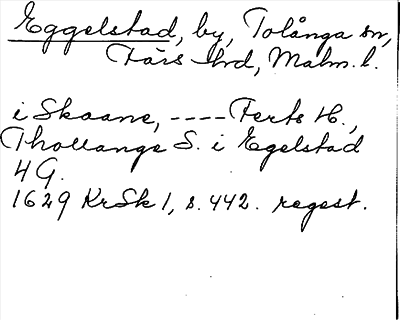 Eggelstad, by, Tolånga sn,
Färs Hrd, Malm. l.
i Skaane, ---- Ferts H.,
Thollange S. i Egelstad
4 G.
1629 KrSk 1, s. 442. regest.